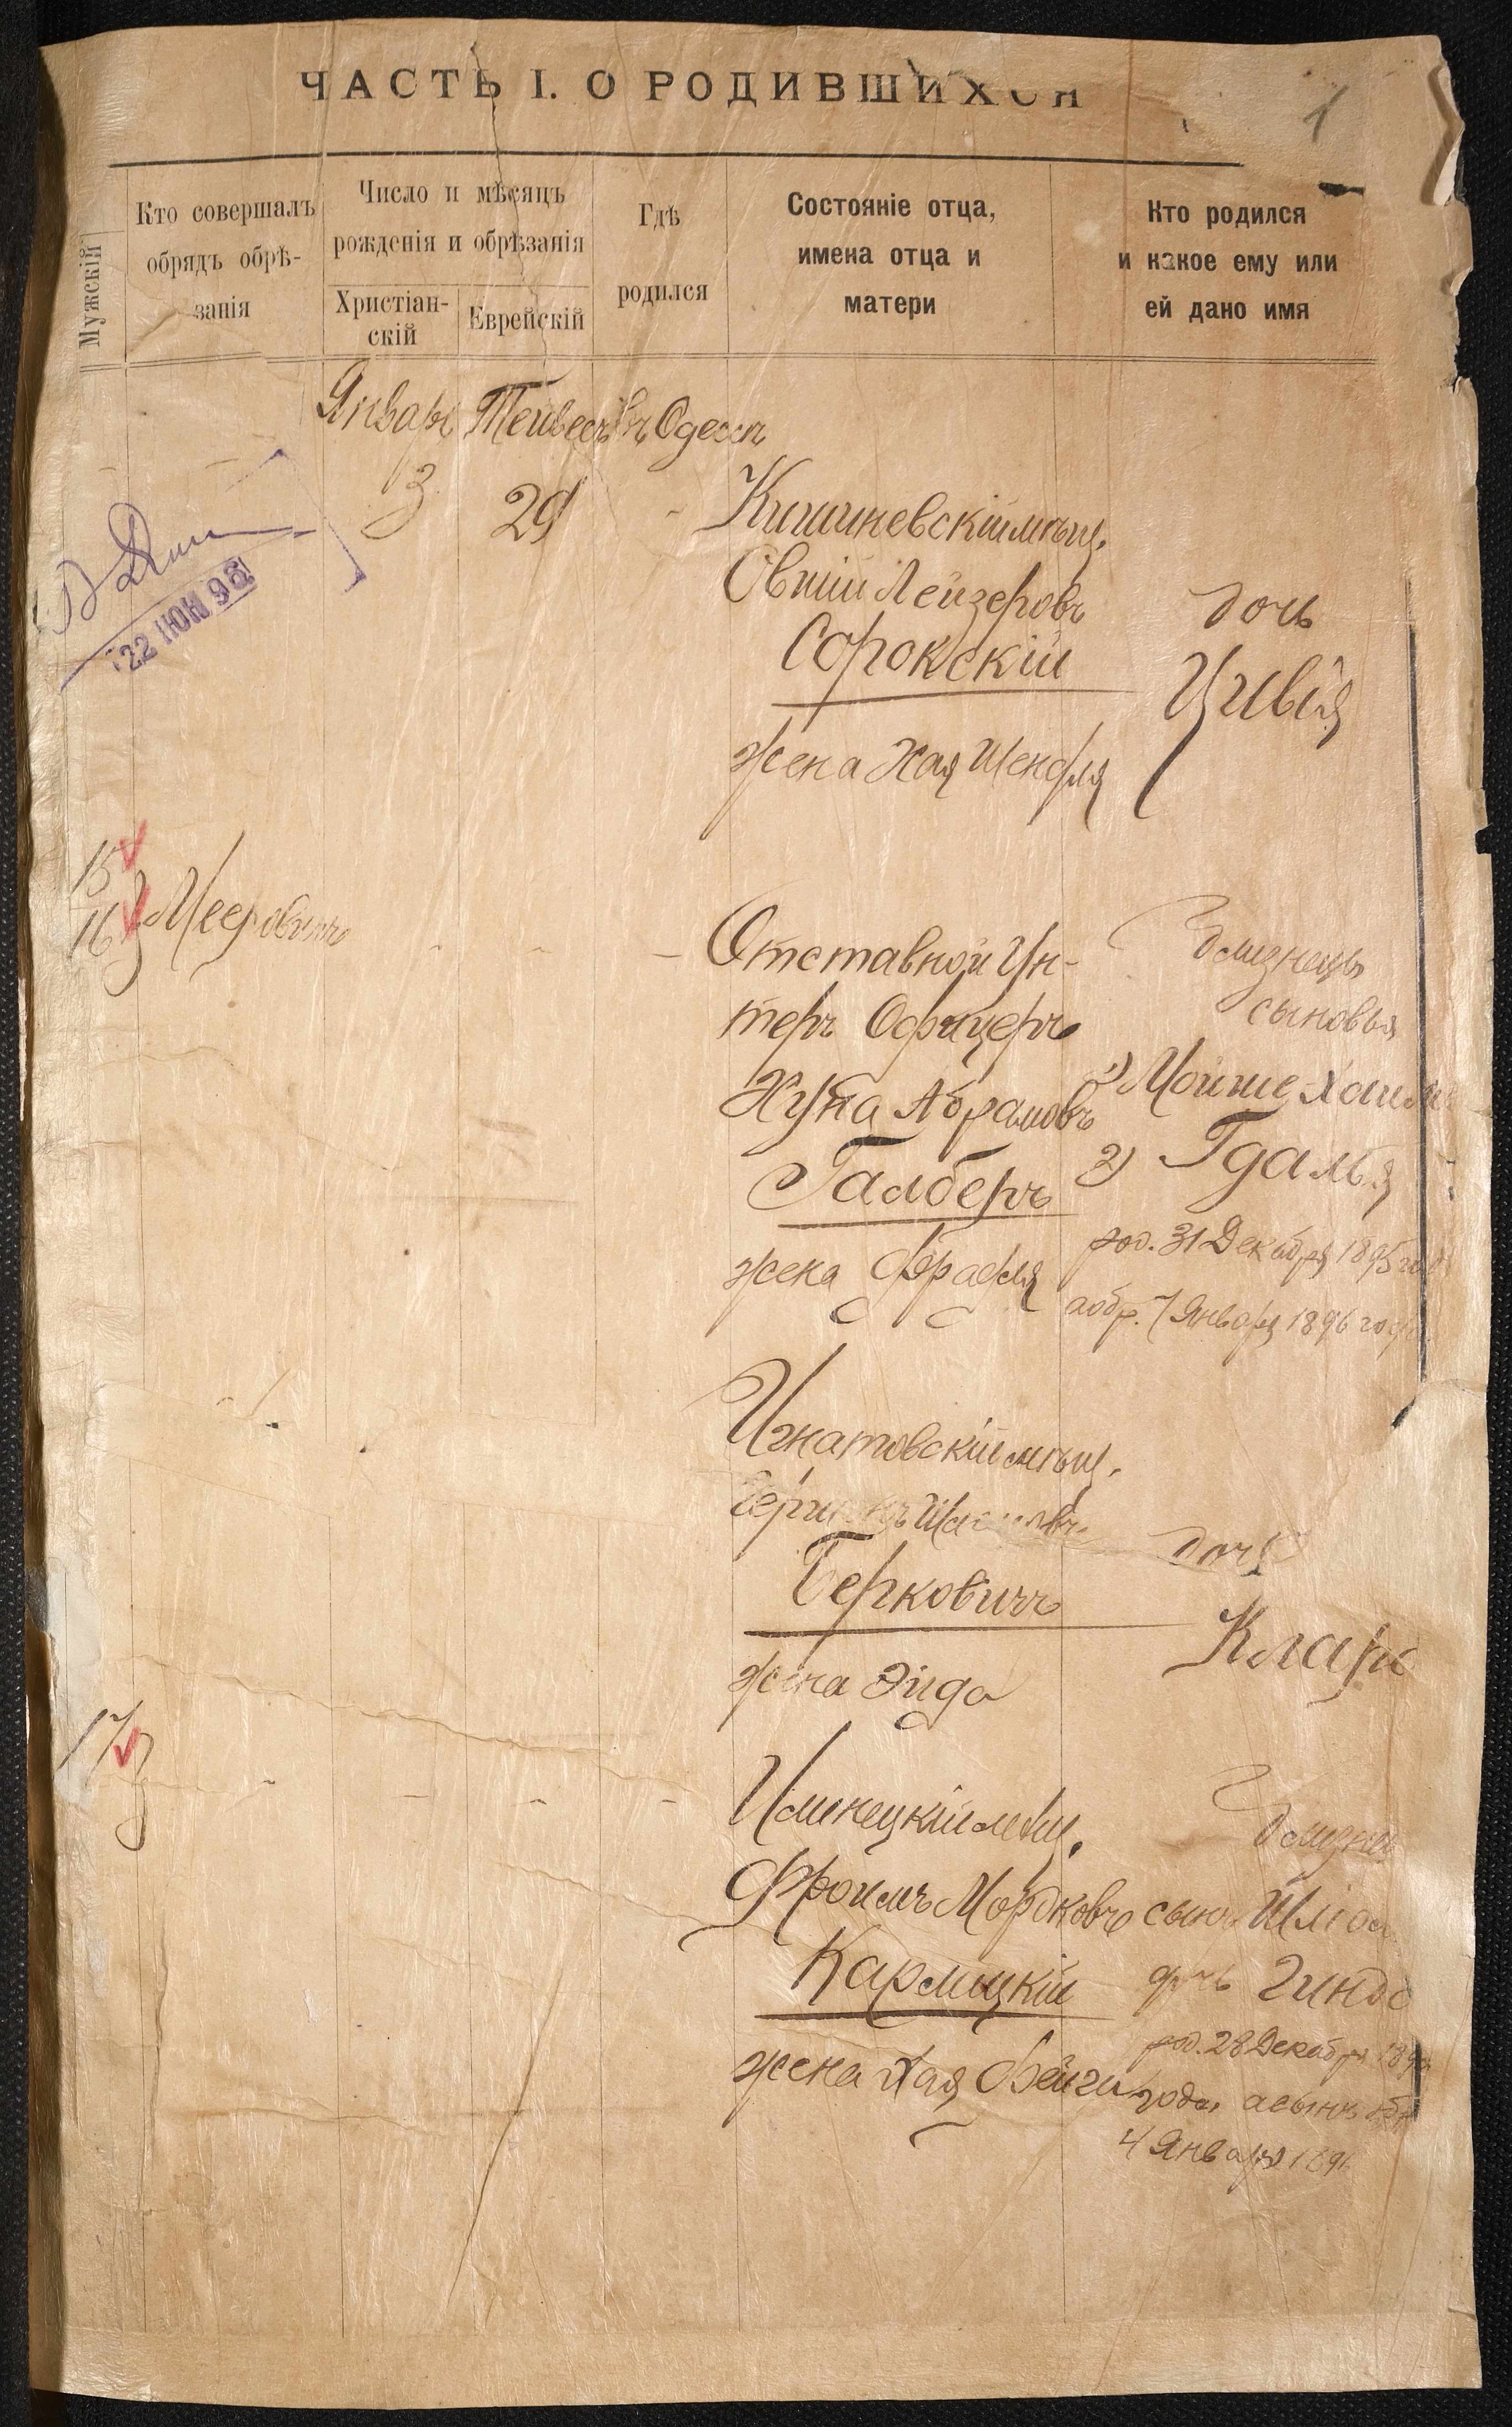 ЧАСТЬ I. О РОДИВШИХСЯ
1
Мужскій
Кто совершалъ
обрядъ обрѣ-
занія
Число и мѣсяцъ
рожденія и обрѣзанія
Христіан-
скій
Еврейскій
Гдѣ
родился
Состояніе отца,
имена отца и
матери
Кто родился
и какое ему или
ей дано имя
Январь Тейвесъ въ Одессѣ
3 29 -
22 ІЮН 98
Кишиневскій мѣщ.
Овшій Лейзеровъ
Сорокскій
жена Хая Шендля
дочь
Цивія
15
16 Мееровичъ
- - -
Отставной Ун-
теръ Офицеръ
Абрамовъ
Галберъ
жена Фрадля
близнецы
сыновья
1) Мойше Хаимъ
2) Гдалья
род. 31 Декабря 1895 год
а обр. 7 Января 1896 года
Игнатовскій мѣщ.
Берковичъ
жена Эйда
дочь
Клара
17
- - - -
Илинецкій мѣщ.
Фроимъ Мордковъ
Кармицкій
жена Хая Фейга
близнец
сынъ
дочь Гинда
род. 28 Декабря
года, а сынъ обр
4 Января 189